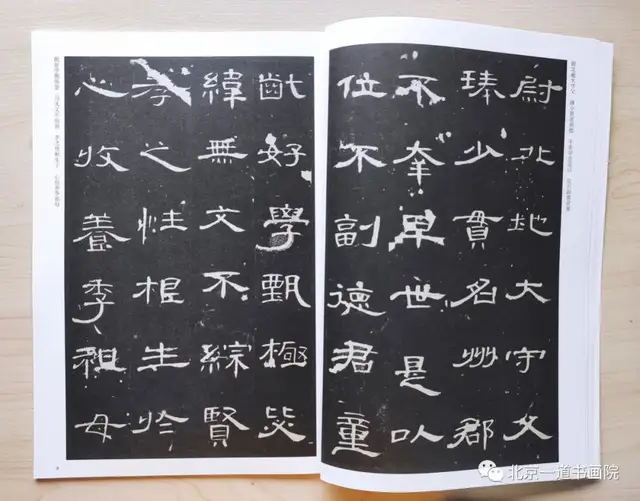 尉北地大守父
琫少貫名州郡
不幸早世是以
位不副德君童
齔好學甄極毖
緯無文不綜賢
孝之性根生於
心收養季祖母
北京一道书画院